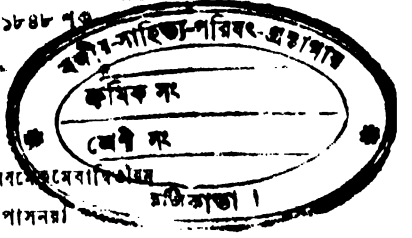 ১৮৪৮ পৃ
বঙ্গীয়-সাহিত্য-পরিষৎ-গ্রন্থাগার
ক্রমিক সং
শ্রেণী সং
কলিকাতা ।
পাসনয়া